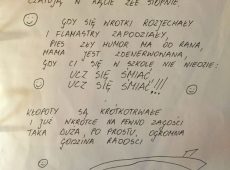 CZATUJĄ W KĄCIE ZŁE STOPNIE,
GDY SIĘ WROTKI ROZJECHAŁY
I FLAMASTRY ZAPODZIAŁY,
PIES ZŁY HUMOR MA OD RANA,
MAMA JEST ZDENERWOWANA,
GDY CI SIĘ W SZKOLE NIE WIEDZIE:
UCZ SIĘ ŚMIAĆ
UCZ SIĘ ŚMIAĆ!!!
KŁOPOTY SĄ KRÓTKOTRWAŁE
I JUŻ WKRÓTCE NA PEWNO ZAGOŚCI
TAKA DUŻA, PO PROSTU, OGROMNA
GODZINA RADOŚCI